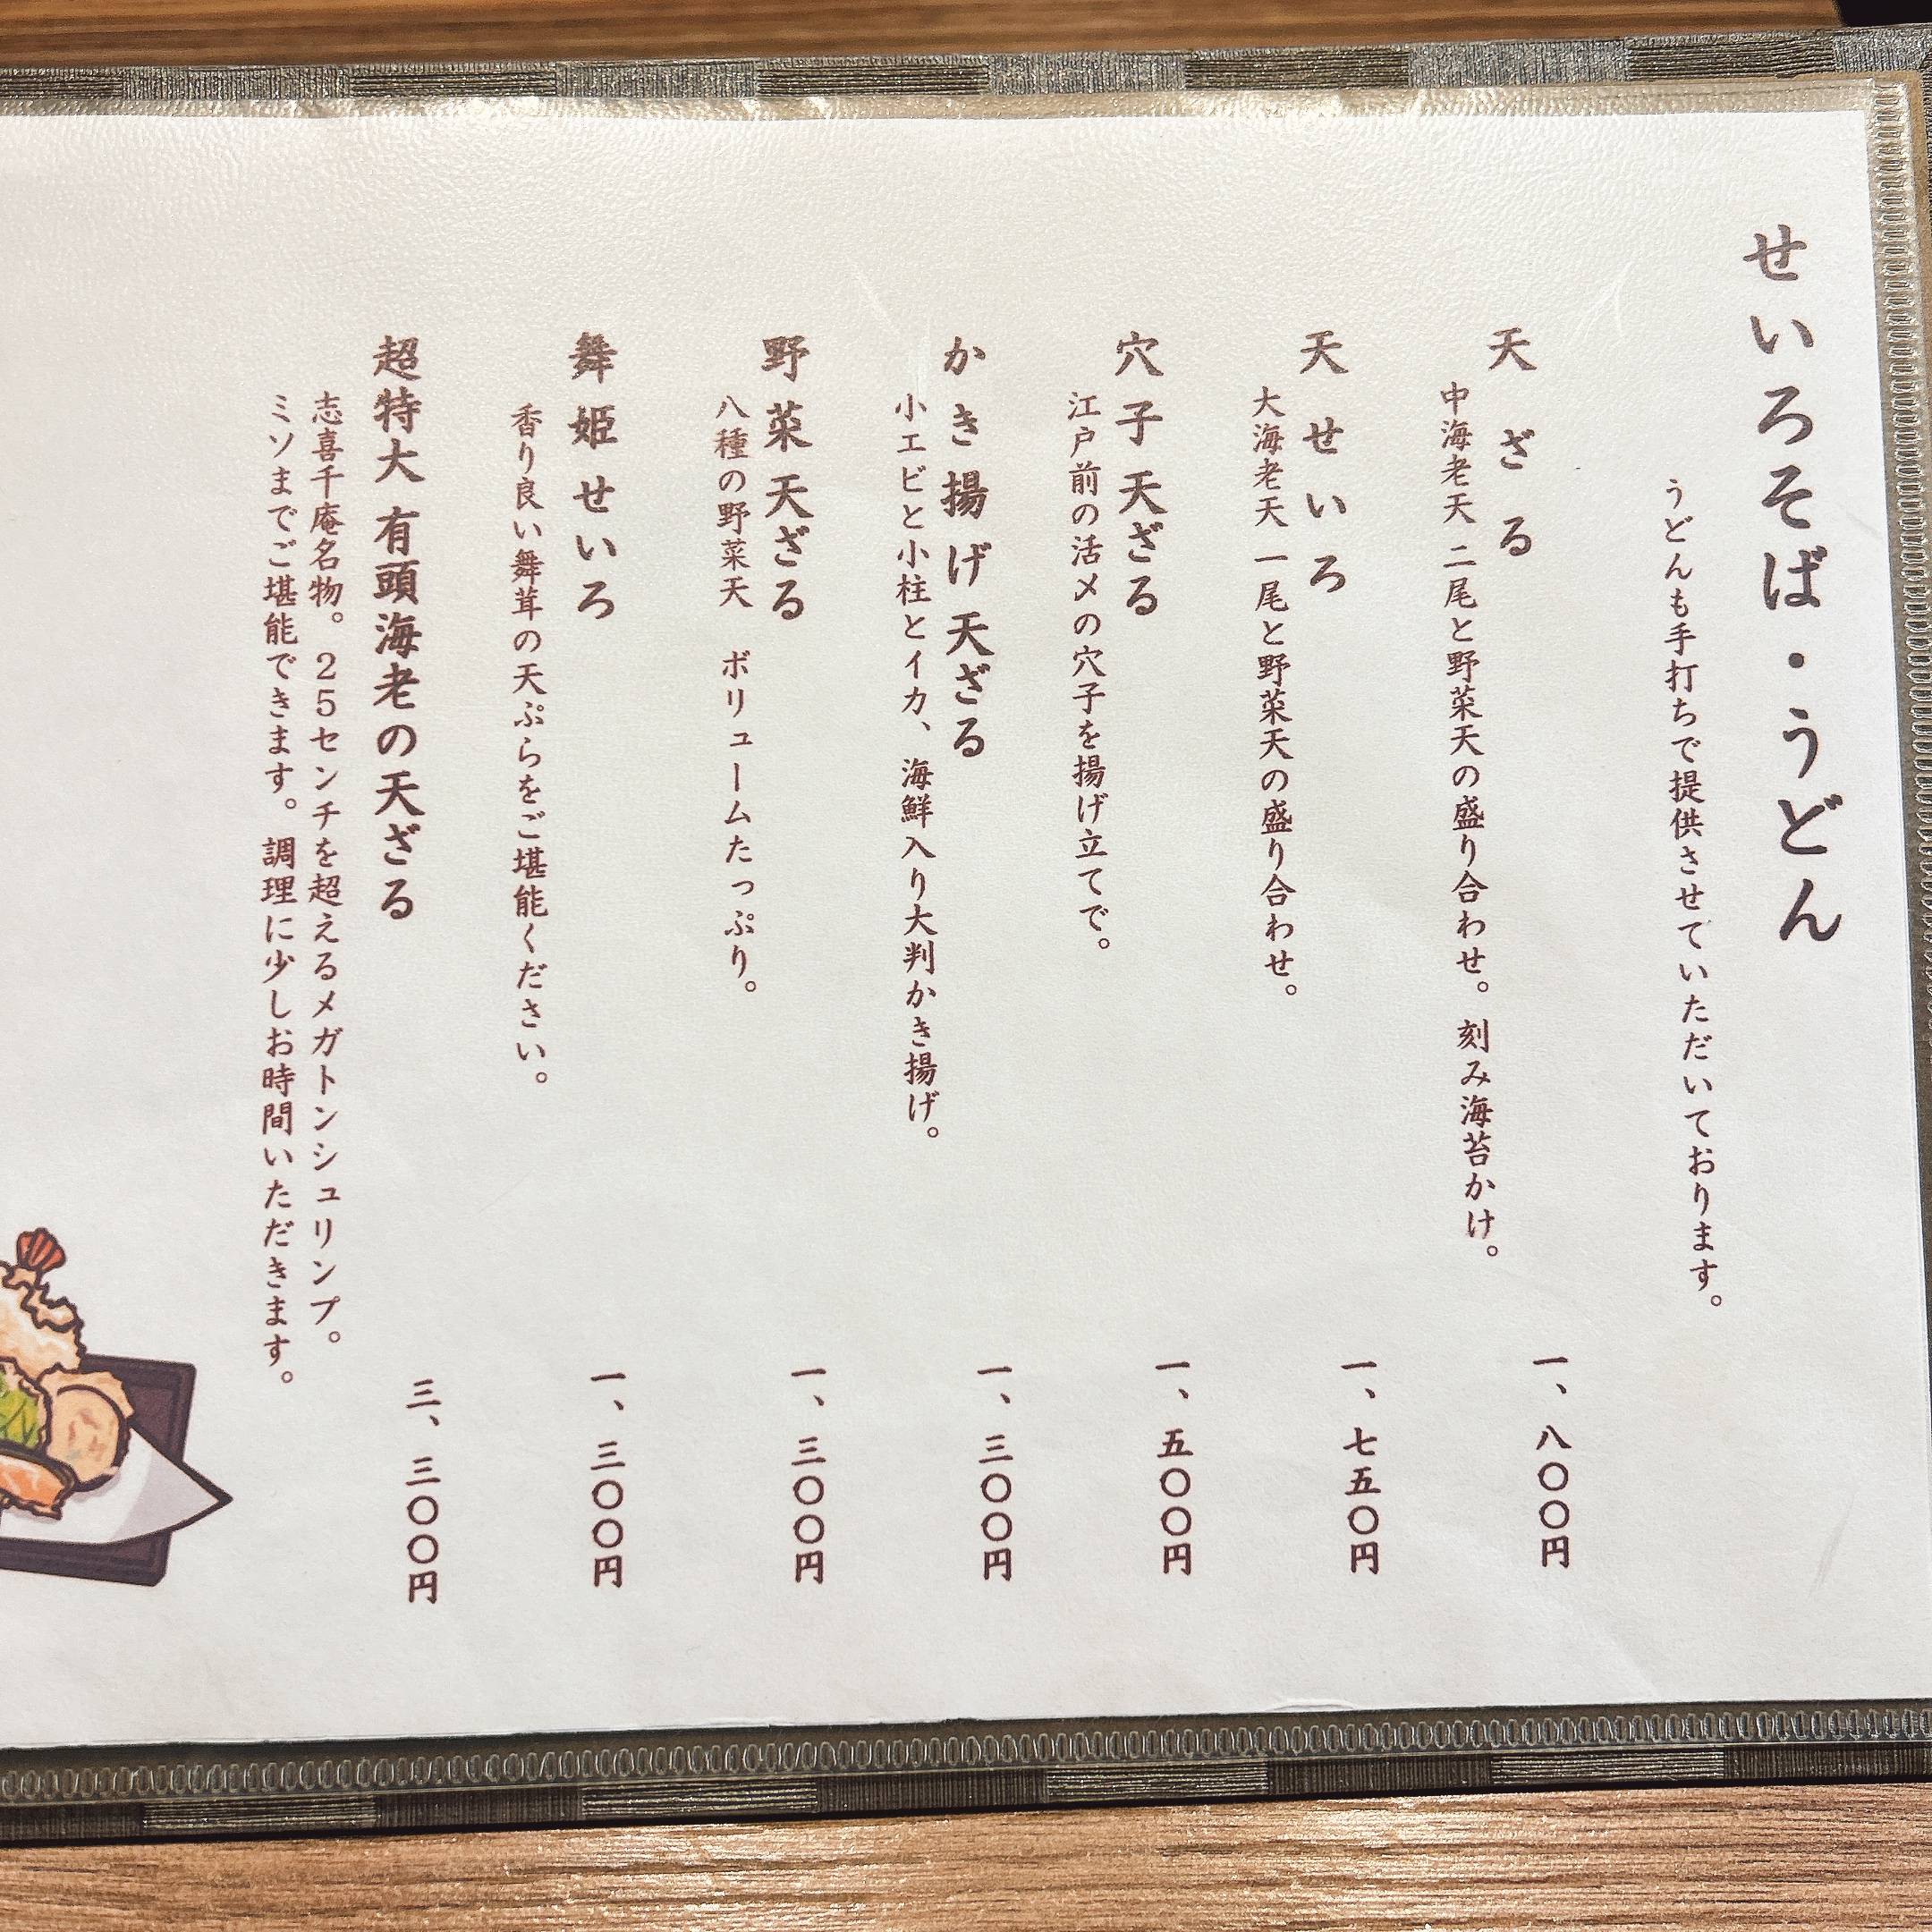 せいろそば・うどん
うどんも手打ちで提供させていただいております。
天ざる
一、八〇〇円
中海老天 二尾と野菜天の盛り合わせ。刻み海苔かけ。
天せいろ
一、七五〇円
大海老天 一尾と野菜天の盛り合わせ。
穴子天ざる
一、五〇〇円
江戸前の活〆の穴子を揚げ立てで。
かき揚げ天ざる
一、三〇〇円
小エビと小柱とイカ、海鮮入り大判かき揚げ。
野菜天ざる
一、三〇〇円
八種の野菜天 ボリュームたっぷり。
舞姫せいろ
一、三〇〇円
香り良い舞茸の天ぷらをご堪能ください。
超特大 有頭海老の天ざる
三、三〇〇円
志喜千庵名物。25センチを超えるメガトンシュリンプ。
ミソまでご堪能できます。調理に少しお時間いただきます。